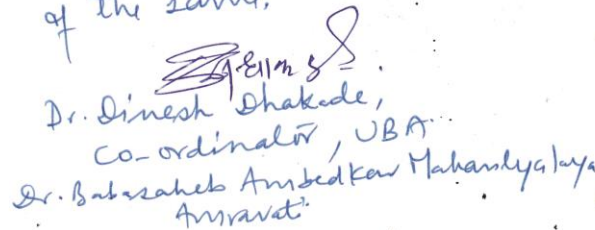 of the
Dr. Dinesh Dhakade,
Co-ordinator, UBA
Dr. Babasaheb Ambedkar Mahavidyalaya
Amravati